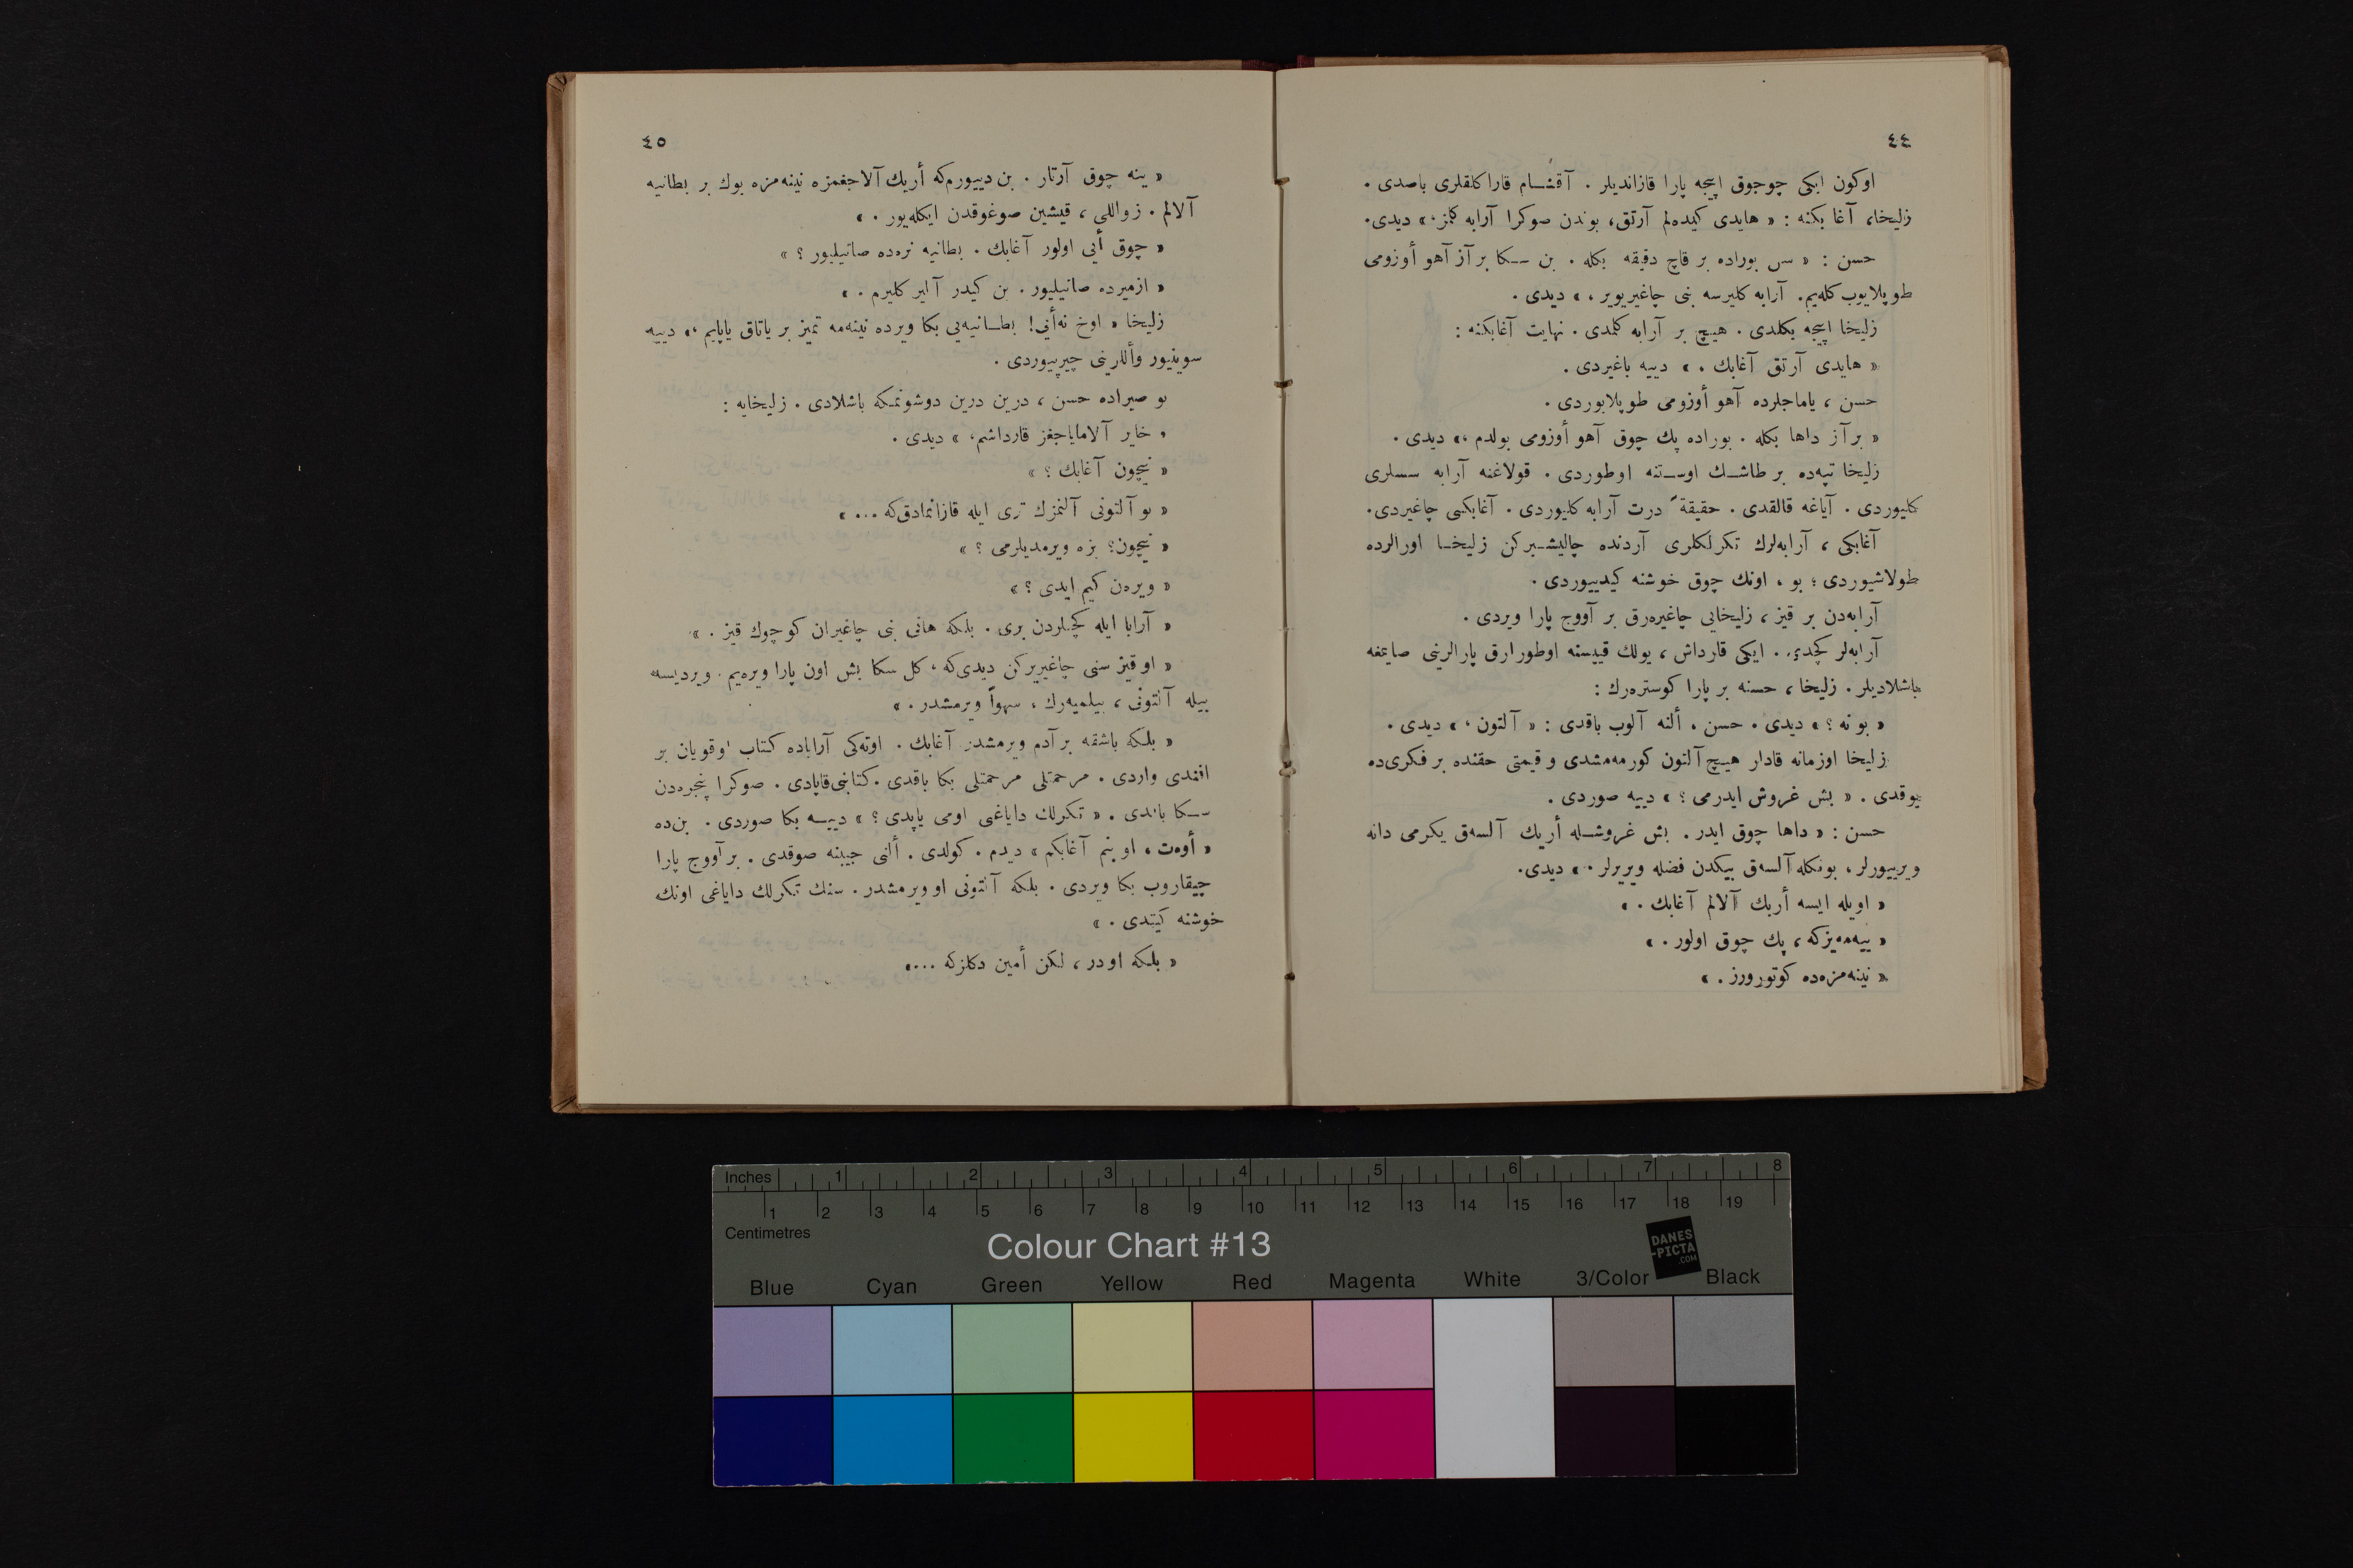 ٤٤
اوكون ایكی چوجوق اپیجه پارا قازاندیلر . آقشام قاراكلقلری باصدی .
زلیخا، آغا بكنه : « هایدی كیده‌لم آرتق، بوندن صوكرا آرابه كلمز. » دیدی.
حسن : « سن بوراده بر قاچ دقیقه بكله . بن سكا بر آز آهو أوزومی
طوپلایوب كله‌یم. آرابه كلیرسه بنی چاغیریویر ، » دیدی .
زلیخا اپیجه بكلدی . هیچ بر آرابه كلمدی . نهایت آغابكنه :
« هایدی آرتق آغابك . » دییه باغیردی .
حسن ، یاماجلرده آهو أوزومی طوپلایوردی .
« بر آز داها بكله . بوراده پك چوق آهو أوزومی بولدم ،» دیدی .
زلیخا تپه‌ده بر طاشك اوستنه اوطوردی . قولاغنه آرابه سسلری
كلیوردی . آیاغه قالقدی . حقیقةً درت آرابه كلیوردی . آغابكسی چاغیردی.
آغابكی ، آرابه‌لرك تكرلكلری آردنده چالیشیركن زلیخا اورالرده
طولاشیوردی ؛ بو ، اونك چوق خوشنه كیدییوردی .
آرابه‌دن بر قیز ، زلیخایی چاغیره‌رق بر آووج پارا ویردی .
آرابه‌لر كچدی . ایكی قارداش ، یولك قییسنه اوطورارق پارالرینی صایمغه
باشلادیلر . زلیخا ، حسنه بر پارا كوستره‌رك :
« بو نه ؟ » دیدی . حسن ، ألنه آلوب باقدی : « آلتون ، » دیدی .
زلیخا اوزمانه قادار هیچ آلتون كورمه‌مشدی و قیمتی حقنده بر فكری‌ده
یوقدی . « بش غروش ایدرمی ؟ » دییه صوردی .
حسن : « داها چوق ایدر . بش غروشله أریك آلسه‌ق یكرمی دانه
ویرییورلر ، بونكله آلسه‌ق بیكدن فضله ویریرلر . » دیدی.
« اویله ایسه أریك آلالم آغابك . »
« ییه‌مه‌یزكه ، پك چوق اولور . »
« نینه‌مزه‌ده كوتورورز . »
٤٥
« ینه چوق آرتار . بن دییورم‌كه أریك آلاجغمزه نینه‌مزه بوك بر بطانیه
آلالم . زواللی ، قیشین صوغوقدن ایكله‌یور . »
« چوق أیی اولور آغابك . بطانیه نره‌ده صاتیلیور ؟ »
« ازمیرده صاتیلیور . بن كیدر آلیر كلیرم . »
زلیخا « اوخ نه‌أیی! بطانیه‌یی بكا ویرده نینه‌مه تمیز بر یاتاق یاپایم ،» دییه
سوینیور وأللرینی چیرپییوردی .
بو صیراده حسن ، درین درین دوشونمكه باشلادی . زلیخایه :
« خایر آلامایاجغز قارداشم، » دیدی .
« نیچون آغابك ؟ »
« بو آلتونی آلنمزك تری ایله قازانمادق‌كه ... »
« نیچون؟ بزه ویرمدیلرمی ؟ »
« ویره‌ن كیم ایدی ؟ »
« آرابا ایله كچنلردن بری . بلكه هانی بنی چاغیران كوچوك قیز . »
« او قیز سنی چاغیریركن دیدی‌كه ، كل سكا بش اون پارا ویره‌یم . ویردیسه
بیله آلتونی ، بیلمیه‌رك ، سهواً ویرمشدر . »
« بلكه باشقه بر آدم ویرمشدر آغابك . اوته‌كی آراباده كتاب اوقویان بر
افندی واردی . مرحمتلی مرحمتلی بكا باقدی . كتابنی قاپادی . صوكرا پنجره‌دن
سكا باقدی . « تكرلك دایاغی اومی یاپدی ؟ » دییه بكا صوردی . بن‌ده
« أوه‌ت ، او بنم آغابكم » دیدم . كولدی . ألنی جیبنه صوقدی . بر آووج پارا
چیقاروب بكا ویردی . بلكه آلتونی او ویرمشدر . سنك تكرلك دایاغی اونك
خوشنه كیتدی . »
« بلكه اودر ، لكن أمین دكلزكه ...»
Inches 1 2 3 4 5 6 7 8
1 2 3 4 5 6 7 8 9 10 11 12 13 14 15 16 17 18 19
Centimetres
Colour Chart #13
DANES
-PICTA
.COM
Blue Cyan Green Yellow Red Magenta White 3/Color Black